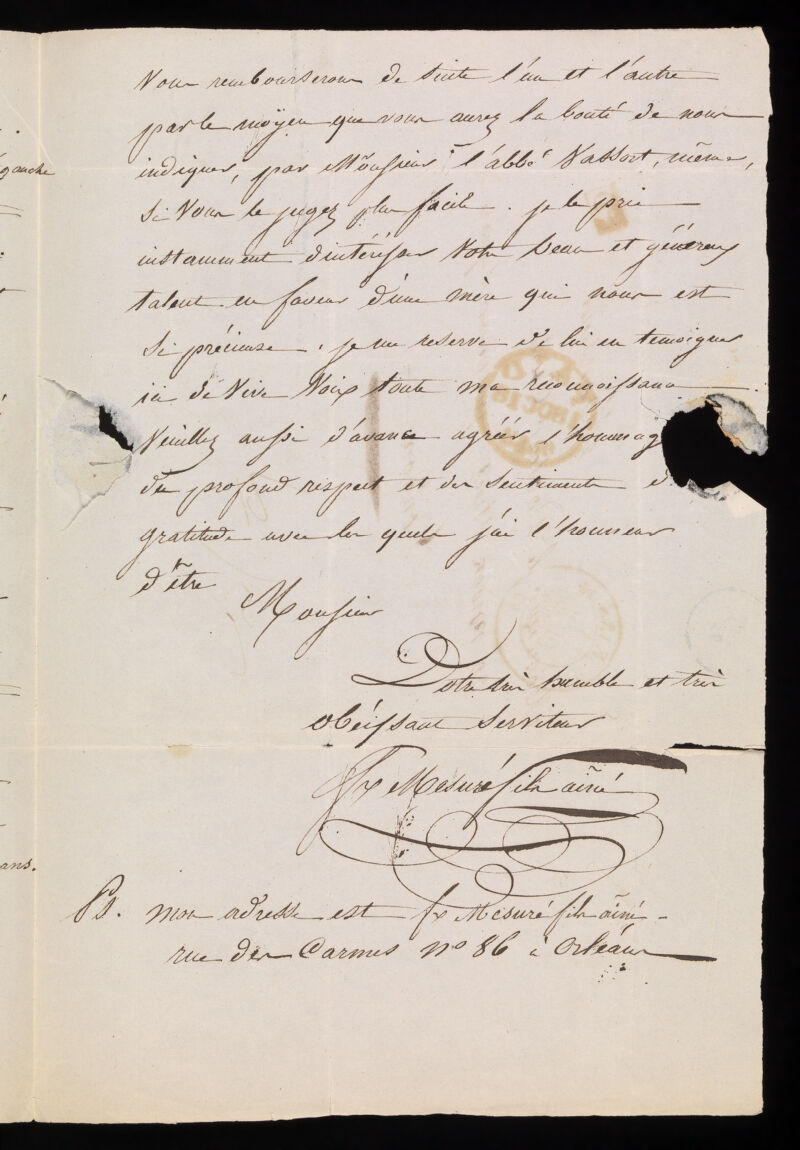 gauche
ans.
Nous rembourserons de suite l'un et l'autre
par le moÿen que vous aurez la bonté de nous
indiquer, par Monsieur l'abbé Vassort, même,
si Vous le jugez plus facile. je le prie
instamment d'intéresser Votre beau et généreux
talent en faveur d'une mère qui nous est
si précieuse. je me reserve de lui en temoigner
ici de Vive Voix toute ma reconnoissance
Veuillez aussi d'avance agréér l'hommag
du profond respect et des sentiments d
gratitude avec les quels j'ai l'honneur
d'être
Monsieur
Votre très humble et très
obéissant serviteur
fx Mesuré fils aîné
Ps. mon adresse est fx Mesuré fils aîné -
rue des Carmes n° 86 à Orléans